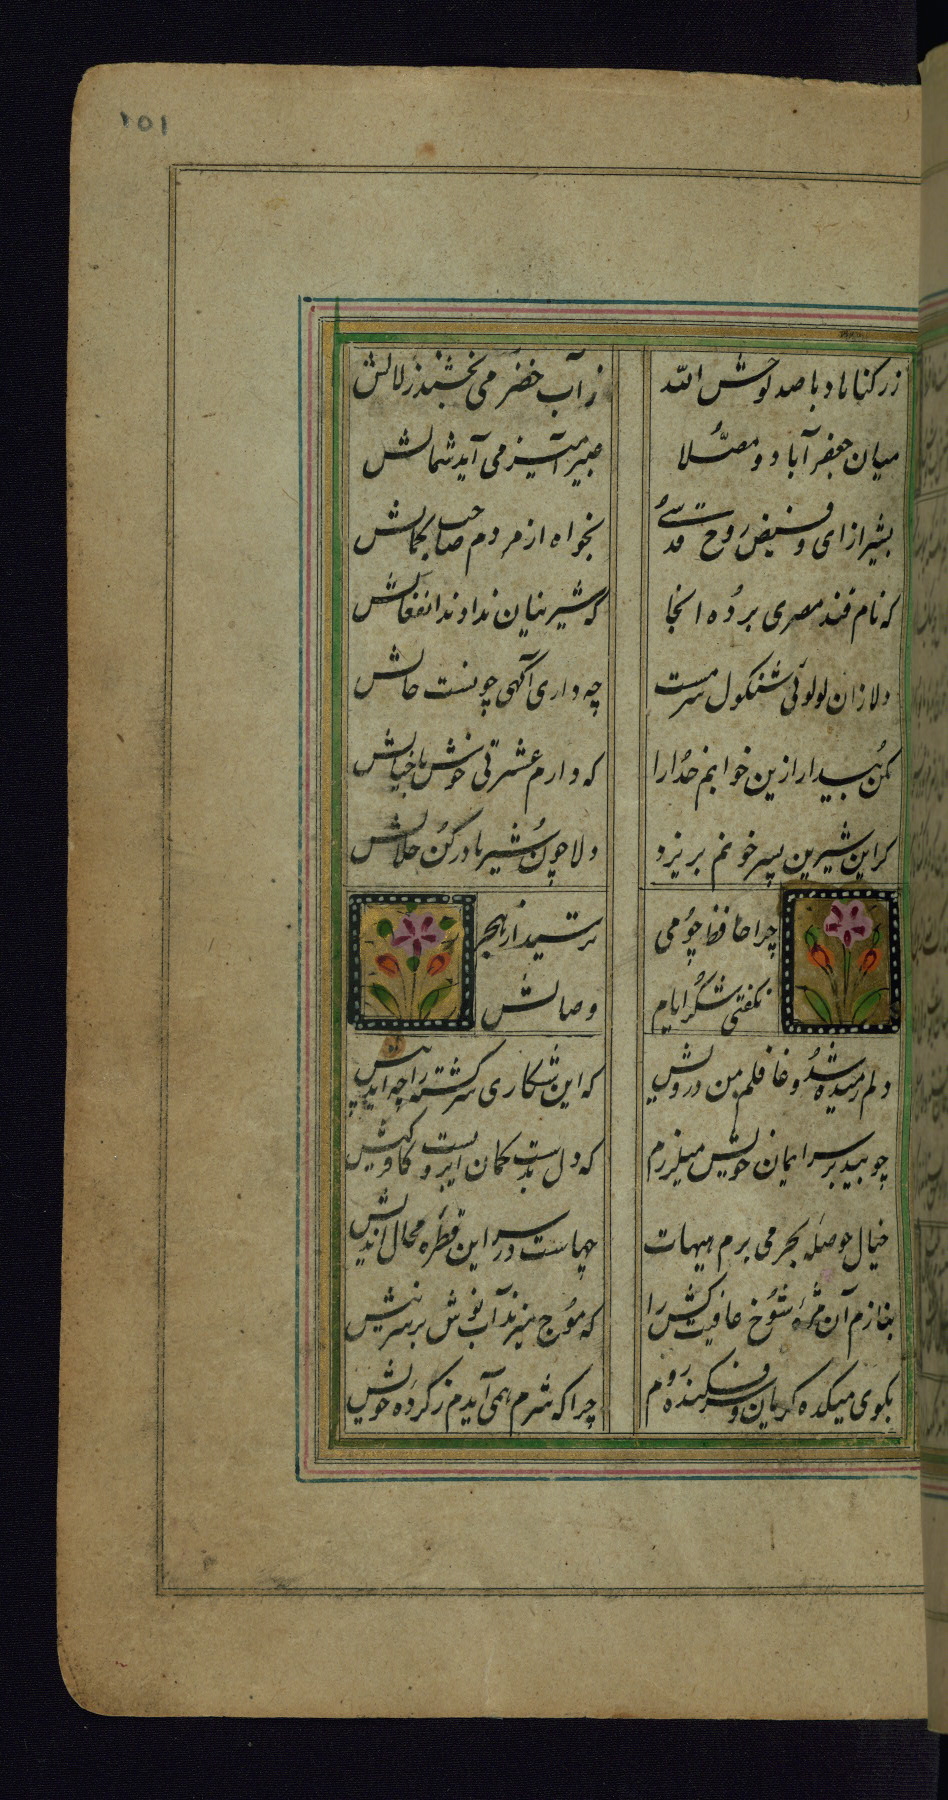 ۱۵۱
زرکنا باد با صد لوحش الله
ز آب خضر می بخشد زلالش
میان جعفرآباد و مصلّا
عبیرآمیز می آید شمالش
بشیراز ای و فیض روح قدسی
بخواه از مردم صاحب کمالش
که نام قند مصری برده انجا
که شیرینان ندادند انفعالش
دلا زان لولوئی شنکول سرمست
چه داری آگهی چونست حالش
مکن بیدار ازین خوابم خدارا
که دارم عشرتی خوش با خیالش
کر این شیرین پسر خونم بریزد
دلا چون شیر مادر کن حلالش
چرا حافظ چو می
ترسید از هجر
نکفتی شکر ایام
وصالش
دلم رمیده شد و غافلم من درویش
که این شکاری سرکشته را چه اید پیش
چو بید بر سر ایمان خویش میلرزم
که دل بدست کمان ابرویست کافر کیش
خیال حوصله بحر می برم هیهات
چهاست در سر این قطره محال اندیش
بنازم آن مژه شوخ عافیت کش را
که موج میزند آب نوش بر سر نیش
بکوی میکده کریان و سرفکنده روم
چرا که شرم همی آیدم ز کرده خویش